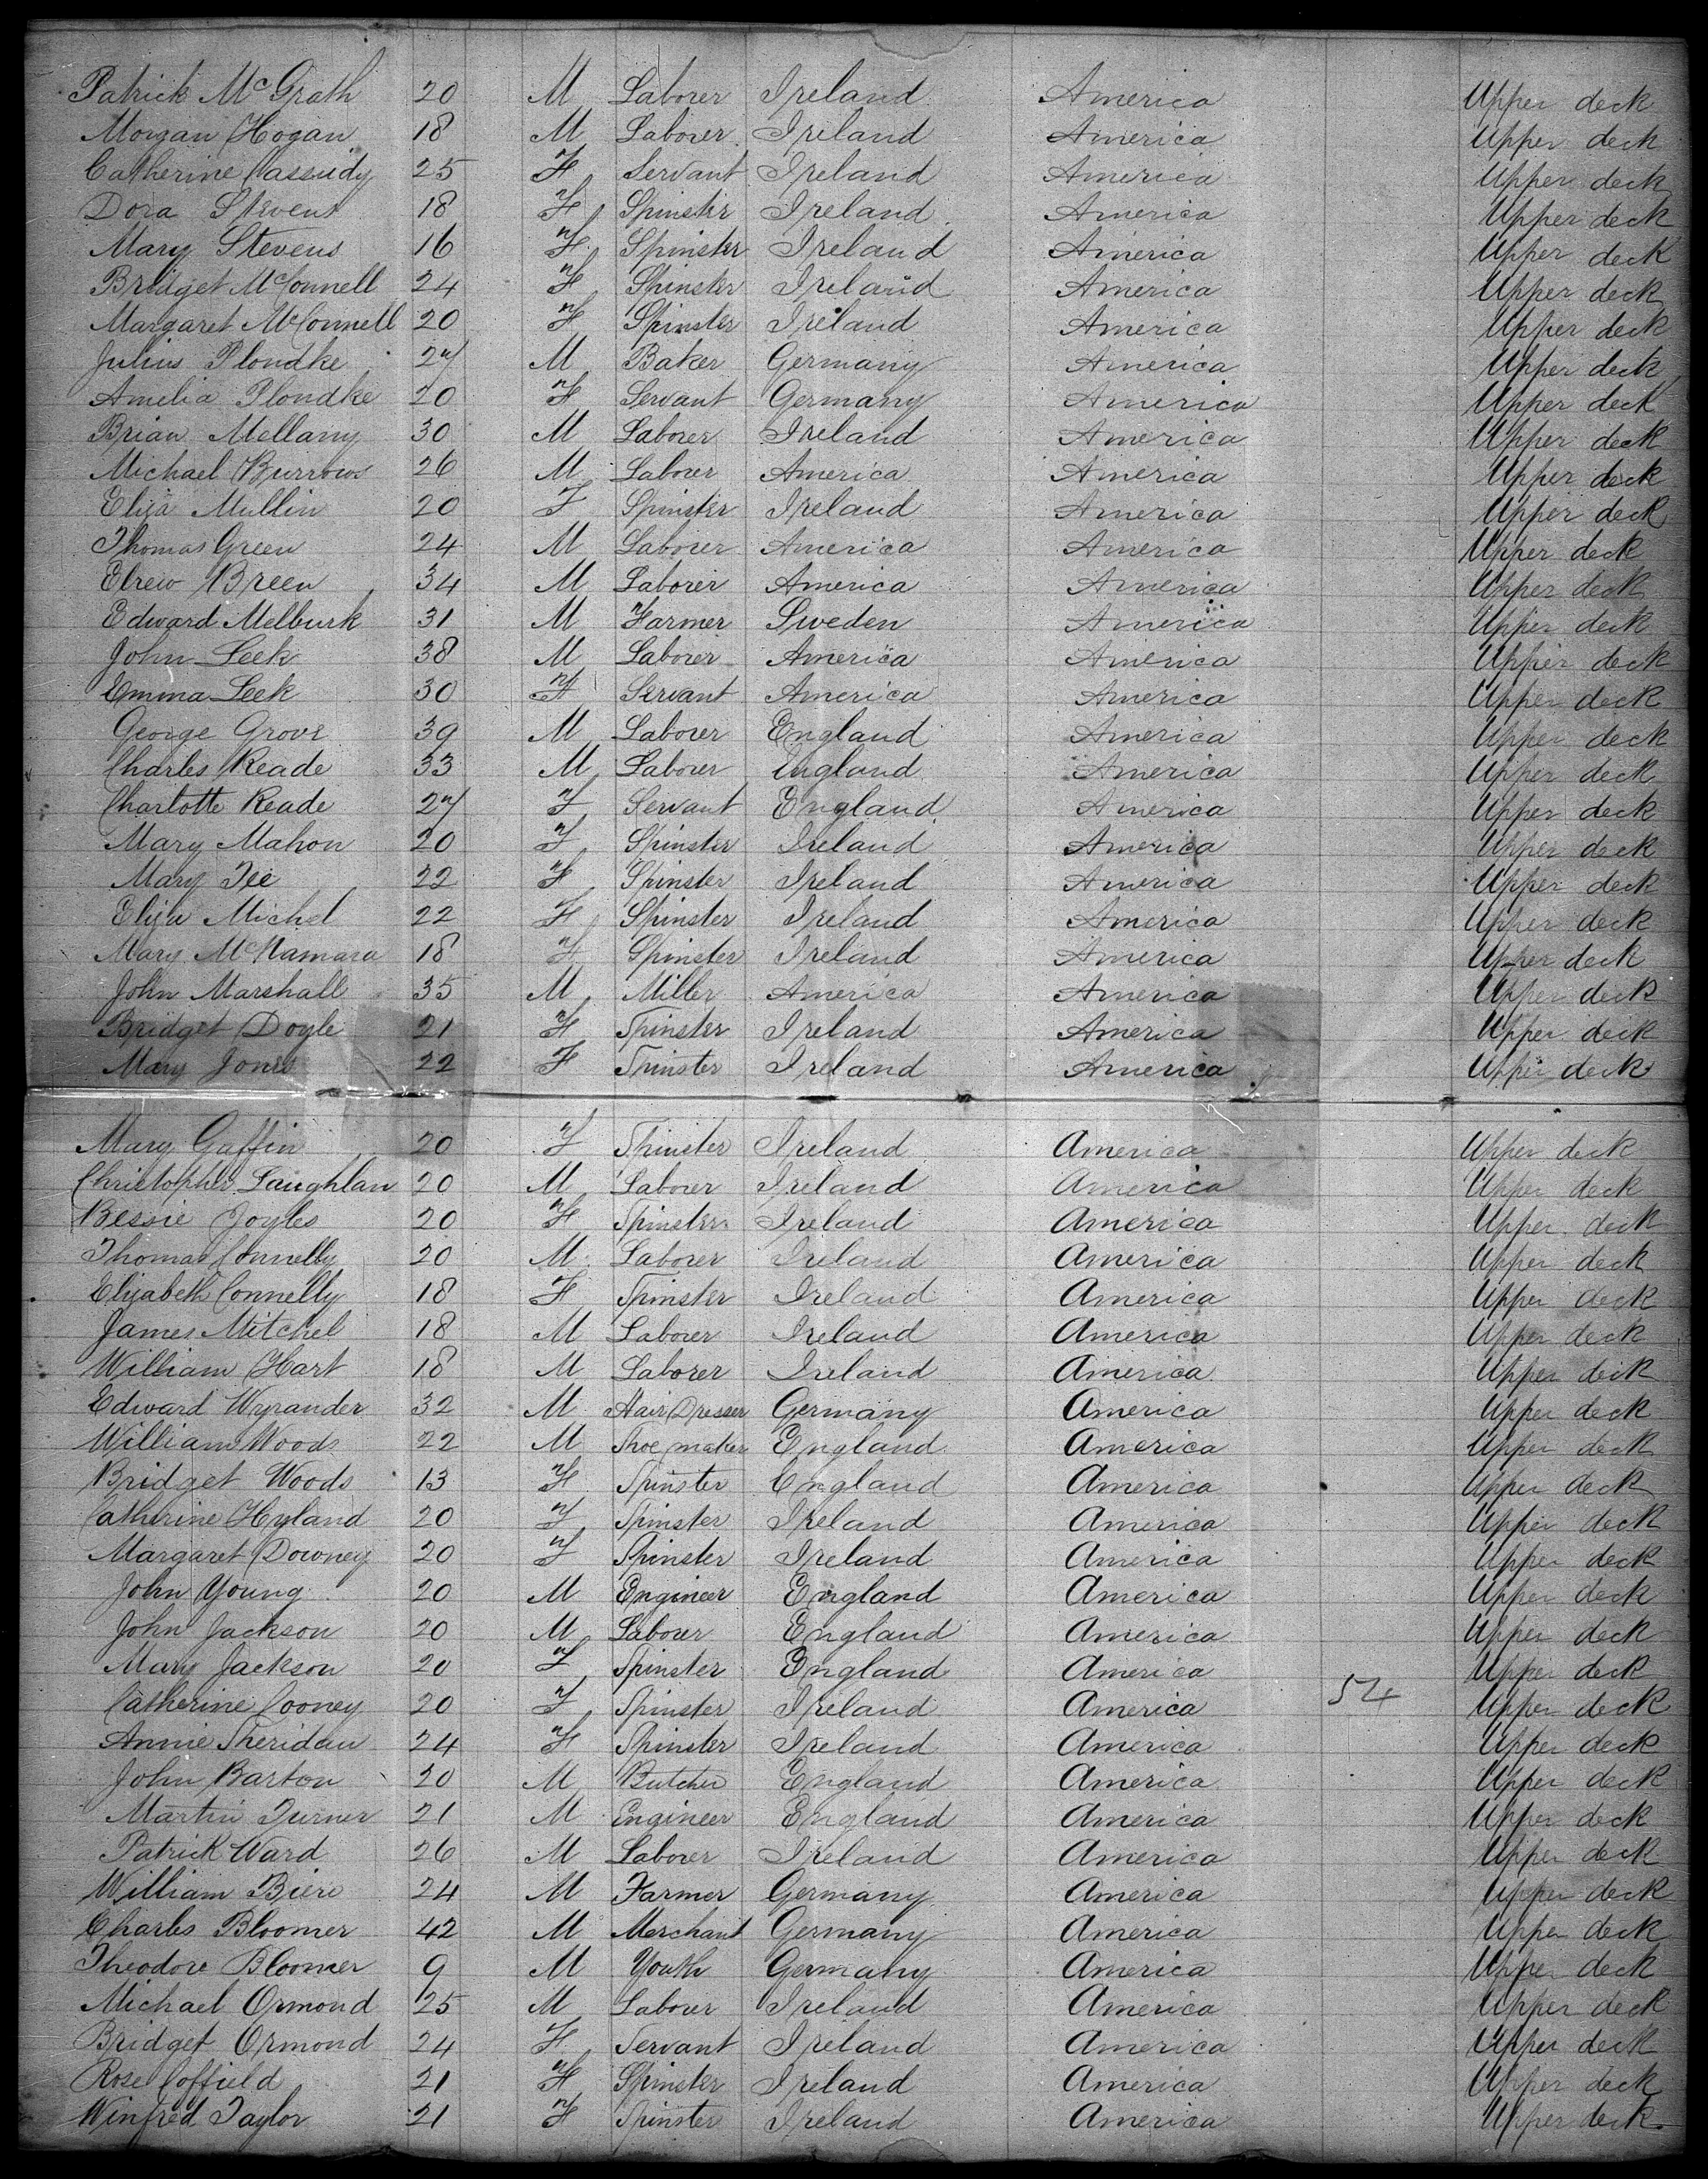 Patrick McGrath 20 M Laborer Ireland America Upper deck
Morgan Hogan 18 M Laborer Ireland America Upper deck
Catherine Cassudy 25 F Servant Ireland America Upper deck
Dora Stevens 18 F Spinster Ireland America Upper deck
Mary Stevens 16 F Spinster Ireland America Upper deck
Bridget McConnell 24 F Spinster Ireland America Upper deck
Margaret McConnell 20 F Spinster Ireland America Upper deck
Julius Plondke 27 M Baker Germany America Upper deck
Amelia Plondke 20 F Servant Germany America Upper deck
Brian Mellany 30 M Laborer Ireland America Upper deck
Michael Burrows 26 M Laborer America America Upper deck
Eliza Mullin 20 F Spinster Ireland America Upper deck
Thomas Green 24 M Laborer America America Upper deck
Elrew Breen 34 M Laborer America America Upper deck
Edward Melburk 31 M Farmer Sweden America Upper deck
John Leek 38 M Laborer America America Upper deck
Emma Leek 30 F Servant America America Upper deck
George Grove 39 M Laborer England America Upper deck
Charles Reade 33 M Laborer England America Upper deck
Charlotte Reade 27 F Servant England America Upper deck
Mary Mahon 20 F Spinster Ireland America Upper deck
Mary Tee 22 F Spinster Ireland America Upper deck
Eliza Michel 22 F Spinster Ireland America Upper deck
Mary McNamara 18 F Spinster Ireland America Upper deck
John Marshall 35 M Miller America America Upper deck
Bridget Doyle 21 F Spinster Ireland America Upper deck
Mary Jones 22 F Spinster Ireland America Upper deck
Mary Gaffin 20 F Spinster Ireland America Upper deck
Christopher Laughlan 20 M Laborer Ireland America Upper deck
Bessie Joyles 20 F Spinster Ireland America Upper deck
Thomas Connelly 20 M Laborer Ireland America Upper deck
Elizabeth Connelly 18 F Spinster Ireland America Upper deck
James Mitchel 18 M Laborer Ireland America Upper deck
William Hart 18 M Laborer Ireland America Upper deck
Edward Wyrander 32 M Hair Dresser Germany America Upper deck
William Woods 22 M Shoe maker England America Upper deck
Bridget Woods 13 F Spinster England America Upper deck
Catherine Hyland 20 F Spinster Ireland America Upper deck
Margaret Downey 20 F Spinster Ireland America Upper deck
John Young 20 M Engineer England America Upper deck
John Jackson 20 M Laborer England America Upper deck
Mary Jackson 20 F Spinster England America Upper deck
Catherine Cooney 20 F Spinster Ireland America 54 Upper deck
Annie Sheridan 24 F Spinster Ireland America Upper deck
John Barton 20 M Butcher England America Upper deck
Martin Turner 21 M Engineer England America Upper deck
Patrick Ward 26 M Laborer Ireland America Upper deck
William Biere 24 M Farmer Germany America Upper deck
Charles Bloomer 42 M Merchant Germany America Upper deck
Theodore Bloomer 9 M Youth Germany America Upper deck
Michael Ormond 25 M Laborer Ireland America Upper deck
Bridget Ormond 24 F Servant Ireland America Upper deck
Rose Coffield 21 F Spinster Ireland America Upper deck
Winfred Taylor 21 F Spinster Ireland America Upper deck